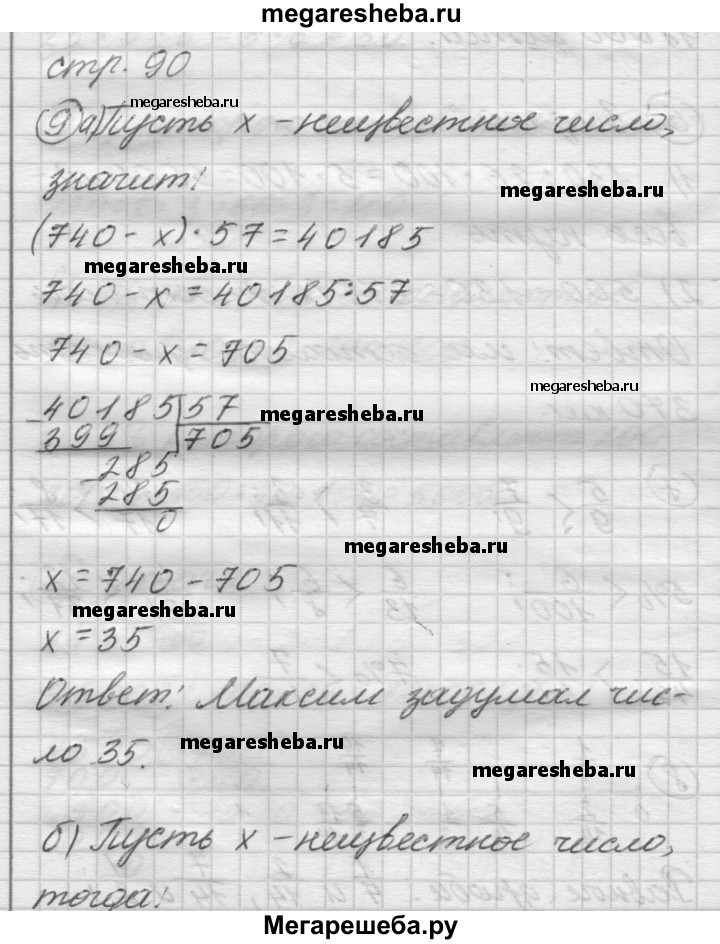 megaresheba.ru
стр. 90
megaresheba.ru
9 а) Пусть x – неизвестное число,
значит:
megaresheba.ru
(740 – x) · 57 = 40185
megaresheba.ru
740 – x = 40185 : 57
740 – x = 705
megaresheba.ru
40185 57
megaresheba.ru
399 705
– 285
285
0
megaresheba.ru
x = 740 – 705
megaresheba.ru
x = 35
Ответ: Максим задумал чис-
ло 35.
megaresheba.ru
megaresheba.ru
б) Пусть x – неизвестное число,
тогда:
Мегарешеба.ру